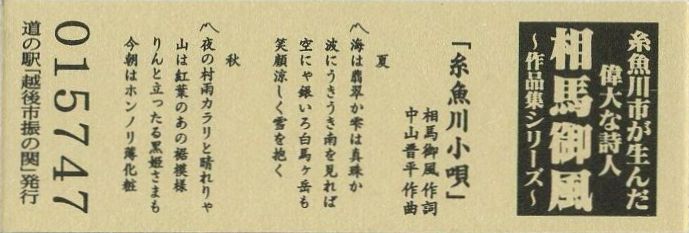 糸魚川市が生んだ
偉大な詩人
相馬御風
～作品集シリーズ～
「糸魚川小唄」
相馬御風 作詞
中山晋平 作曲
夏
〽海は翡翠か雫は真珠か
波にうきうき南を見れば
空にゃ銀いろ白馬ヶ岳も
笑顔涼しく雪を抱く
秋
〽夜の村雨カラリと晴れりゃ
山は紅葉のあの裾模様
りんと立ったる黒姫さまも
今朝はホンノリ薄化粧
015747
道の駅「越後市振の関」発行